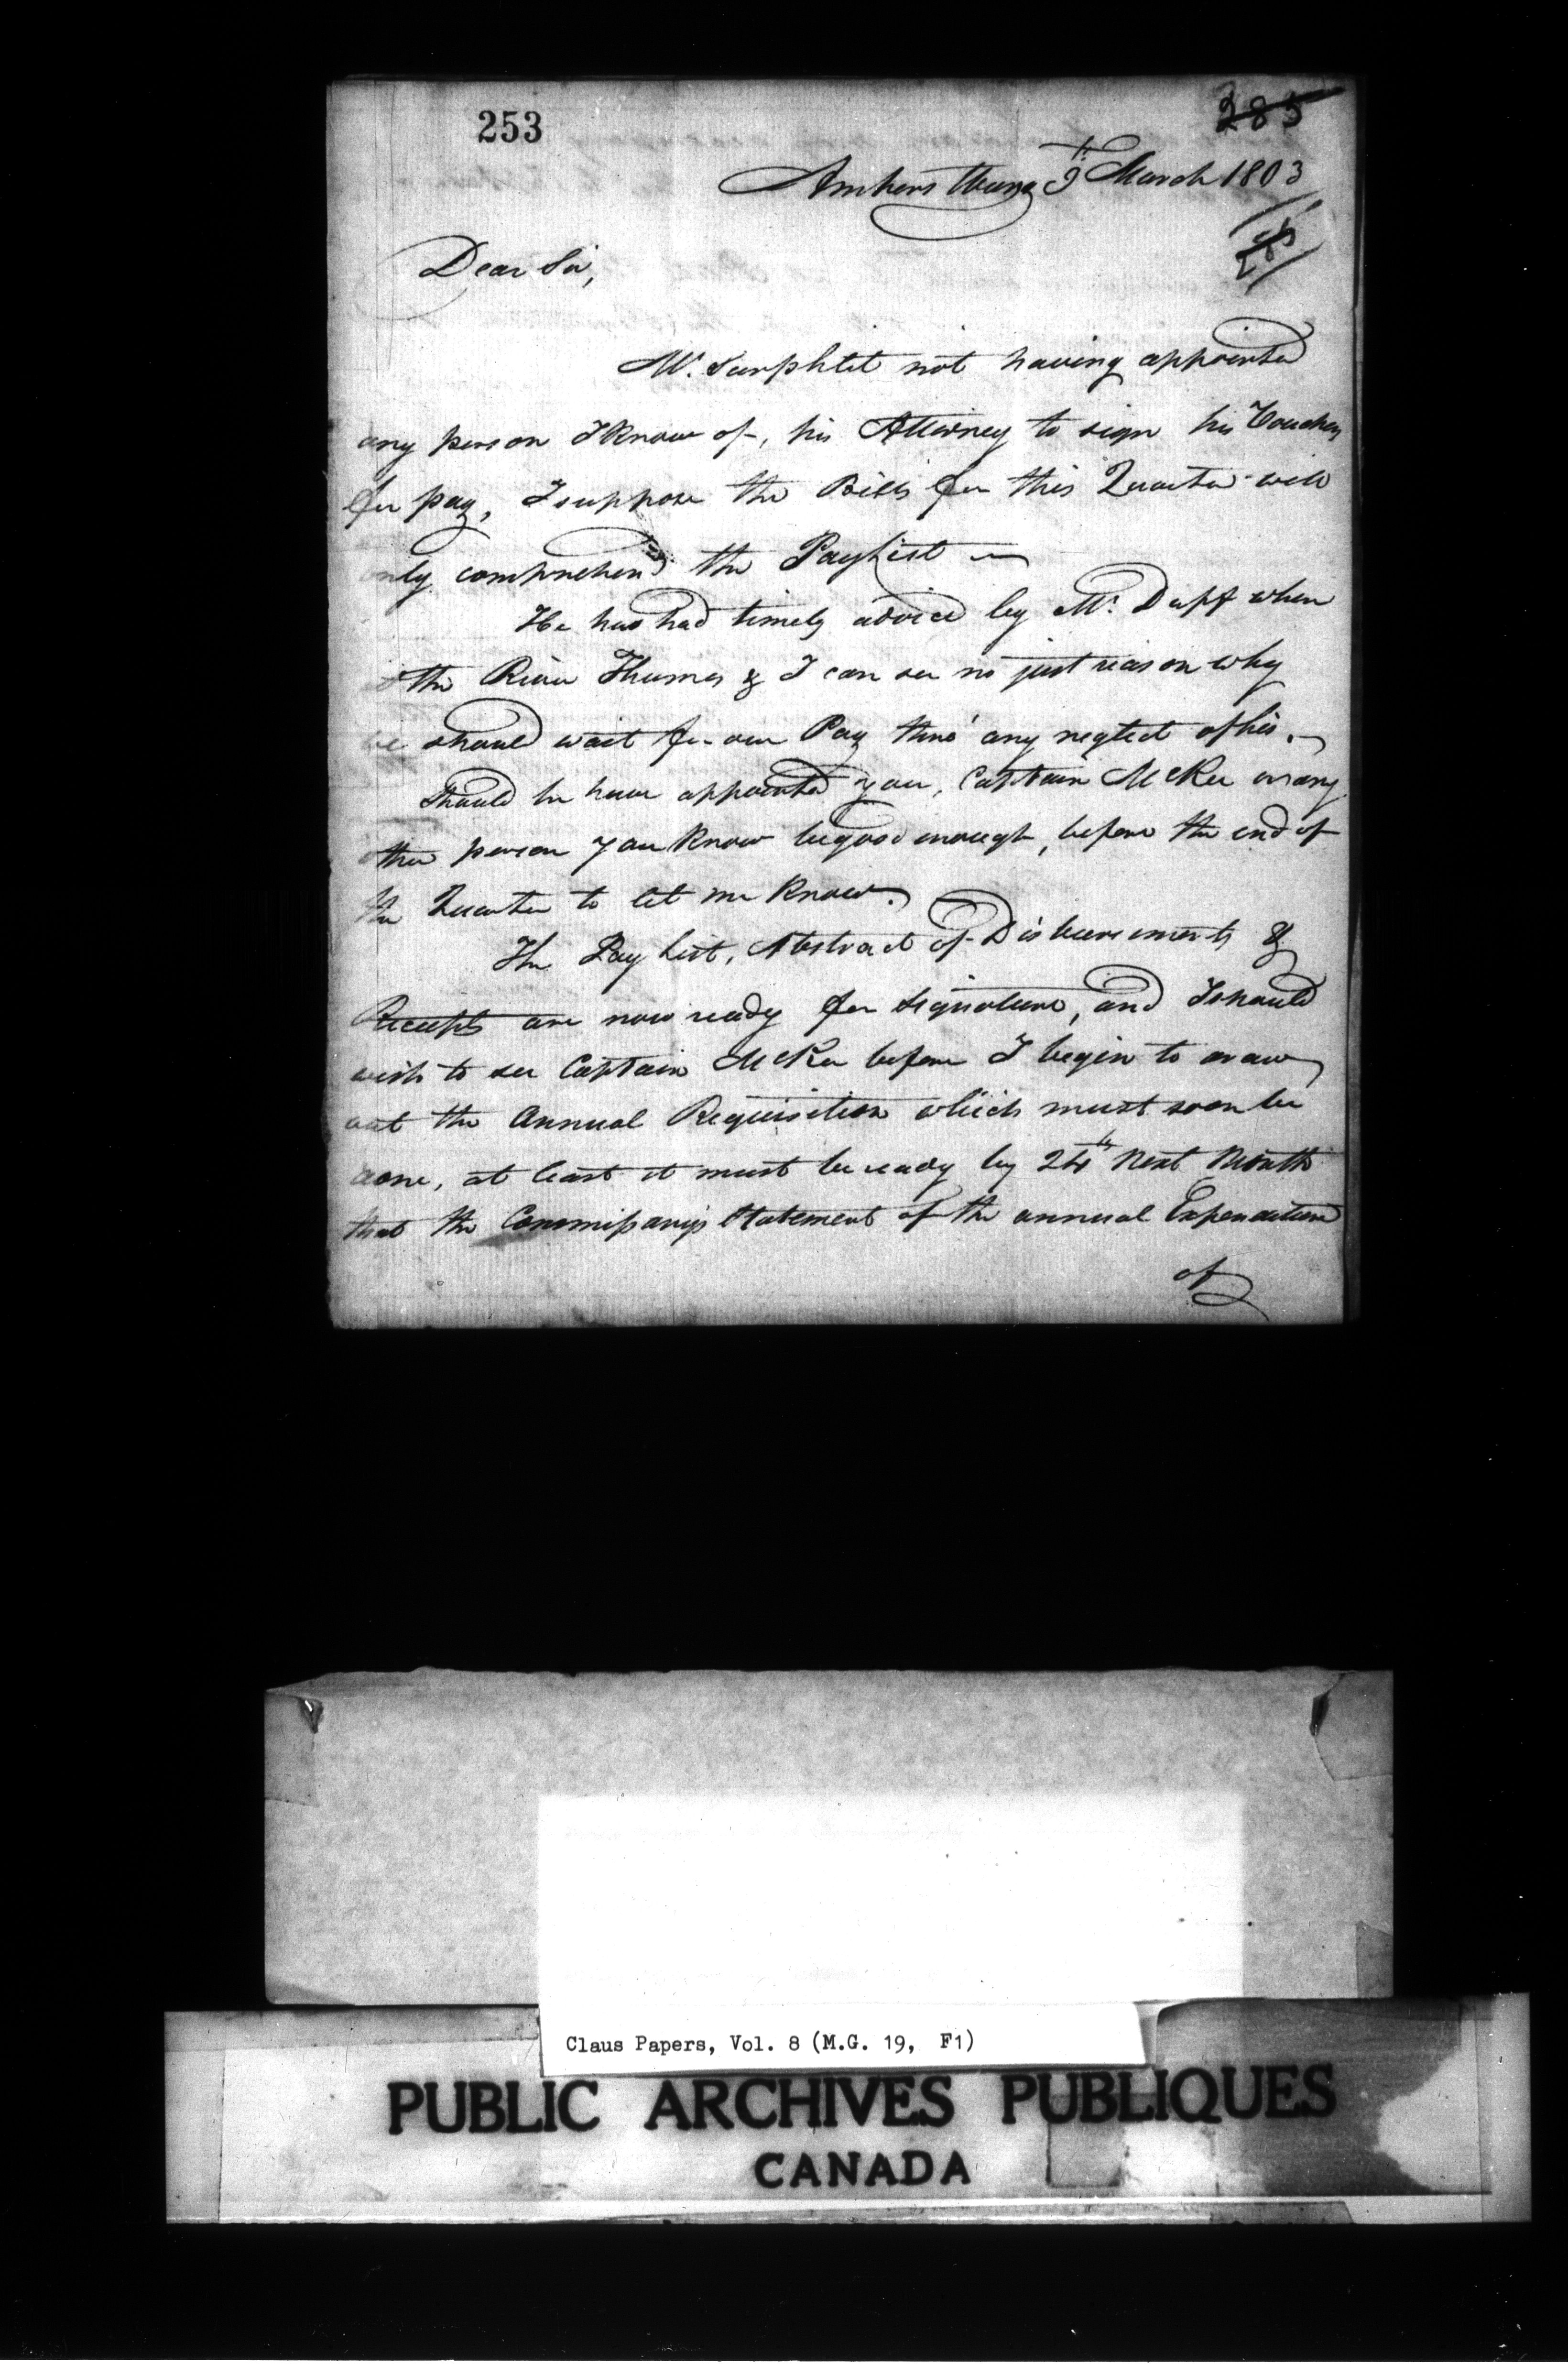 253
285
Amherstburg 9th March 1803
285
Dear Sir,
Mr. Surphlit not having appointed
any person I know of, his Attorney to sign his Vouchers
for pay, I suppose the Bills for this Quarter will
only comprehend the Paylist
He has had timely advice by Mr. Duff when
at the River Thames & I can see no just reason why
we should wait for our Pay thro' any neglect of his.
Should he have appointed you, Captain McKee or any
other person you know be good enough, before the end of
the Quarter to let me know.
The Pay list, Abstract of Disbursements &
Receipts are now ready for Signature, and I should
wish to see Captain McKee before I begin to draw
out the Annual Requisition which must soon be
done, at least it must be ready by 24th Next Month
that the Commissary's Statement of the annual Expenditure
of
Claus Papers, Vol. 8 (M.G. 19, F1)
PUBLIC ARCHIVES PUBLIQUES
CANADA